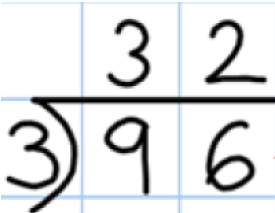 32
3)96